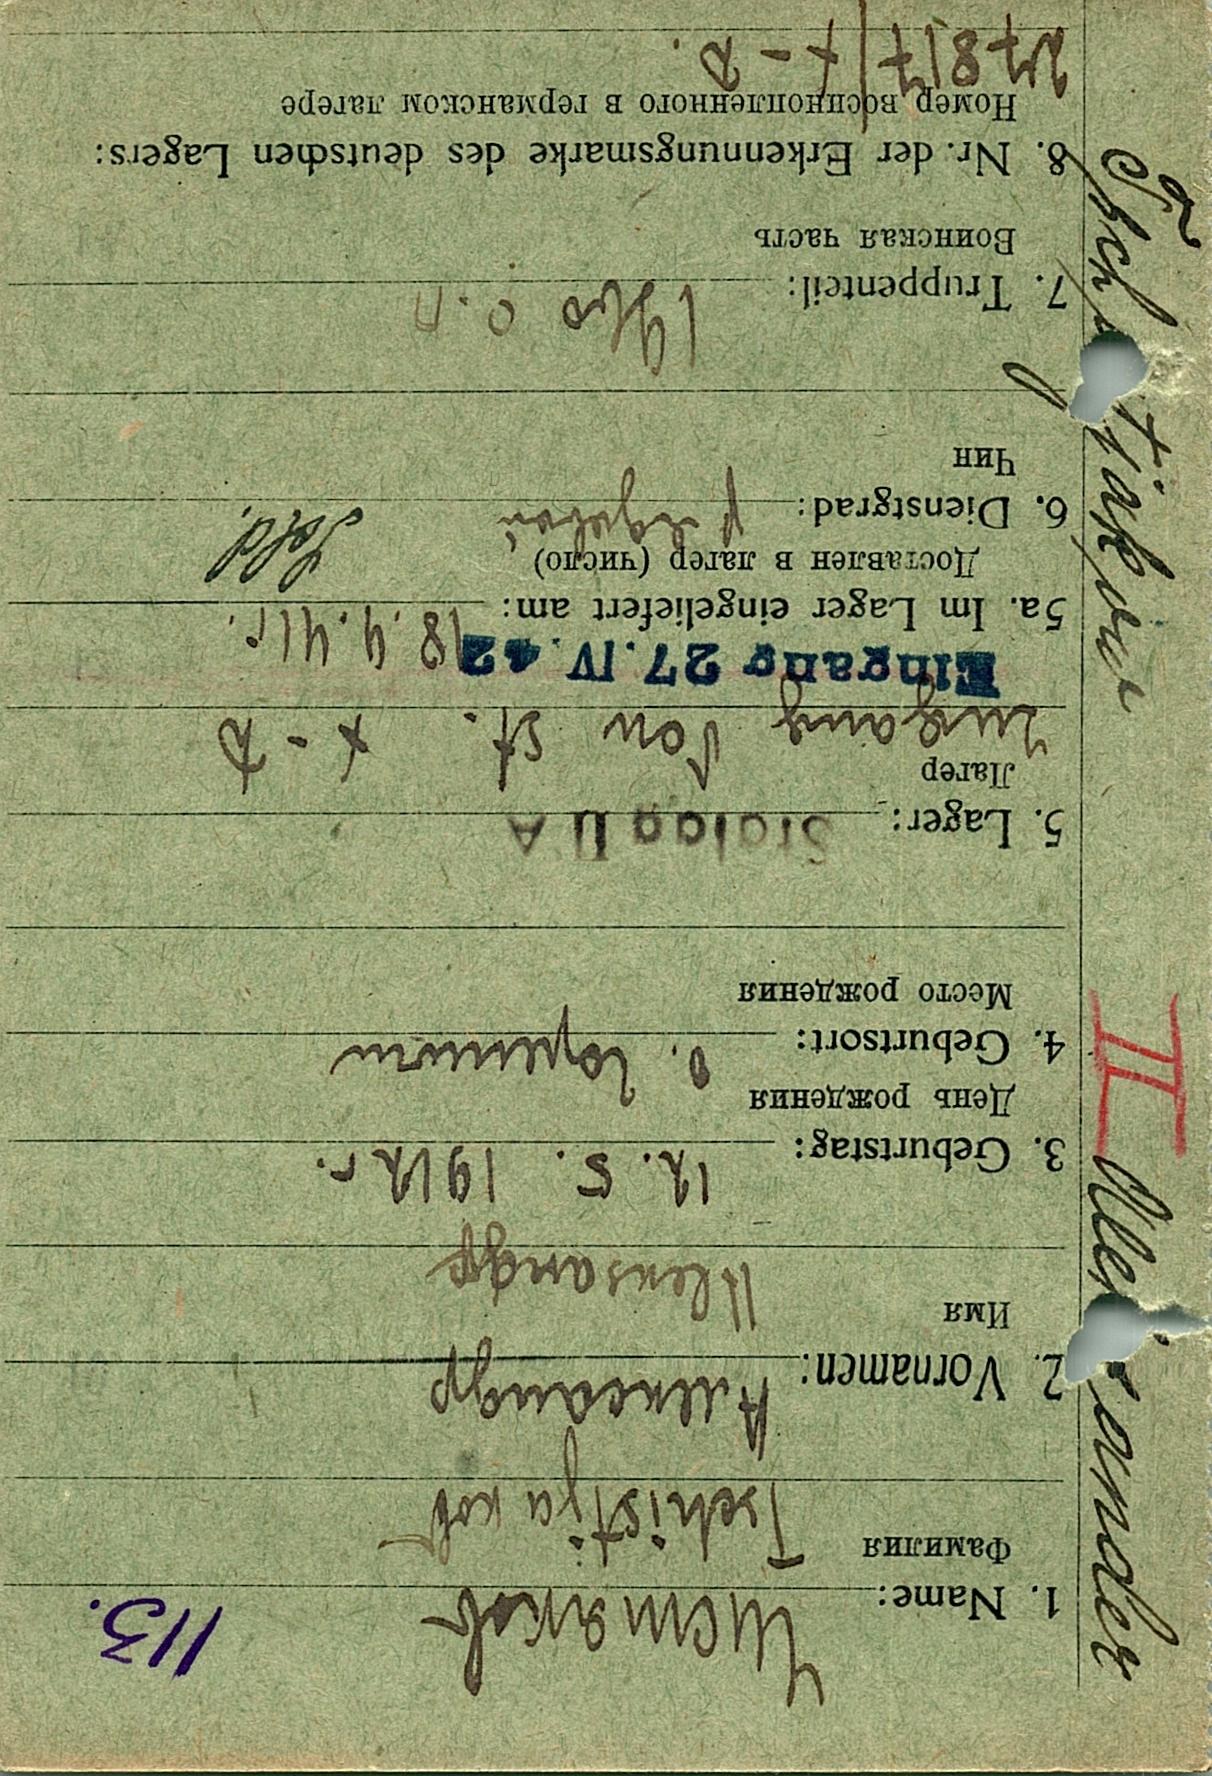 113.
1. Name: Чистяков
Фамилия Tschistjakow
2. Vornamen: Александр
Имя
Alexsandr
3. Geburtstag: 12. 5. 1912 г.
День рождения
4. Geburtsort:
Место рождения
5. Lager: Stalag II A
Лагер
Zugang von St. X-D
Eingang 27. IV. 42
5a. Im Lager eingeliefert am: 18. 9. 41 г.
Доставлен в лагер (число)
6. Dienstgrad: рядовой Sold.
Чин
7. Truppenteil:
Воинская часть
8. Nr. der Erkennungsmarke des deutschen Lagers:
Номер военнопленного в германском лагере
27817 / X-D.
II